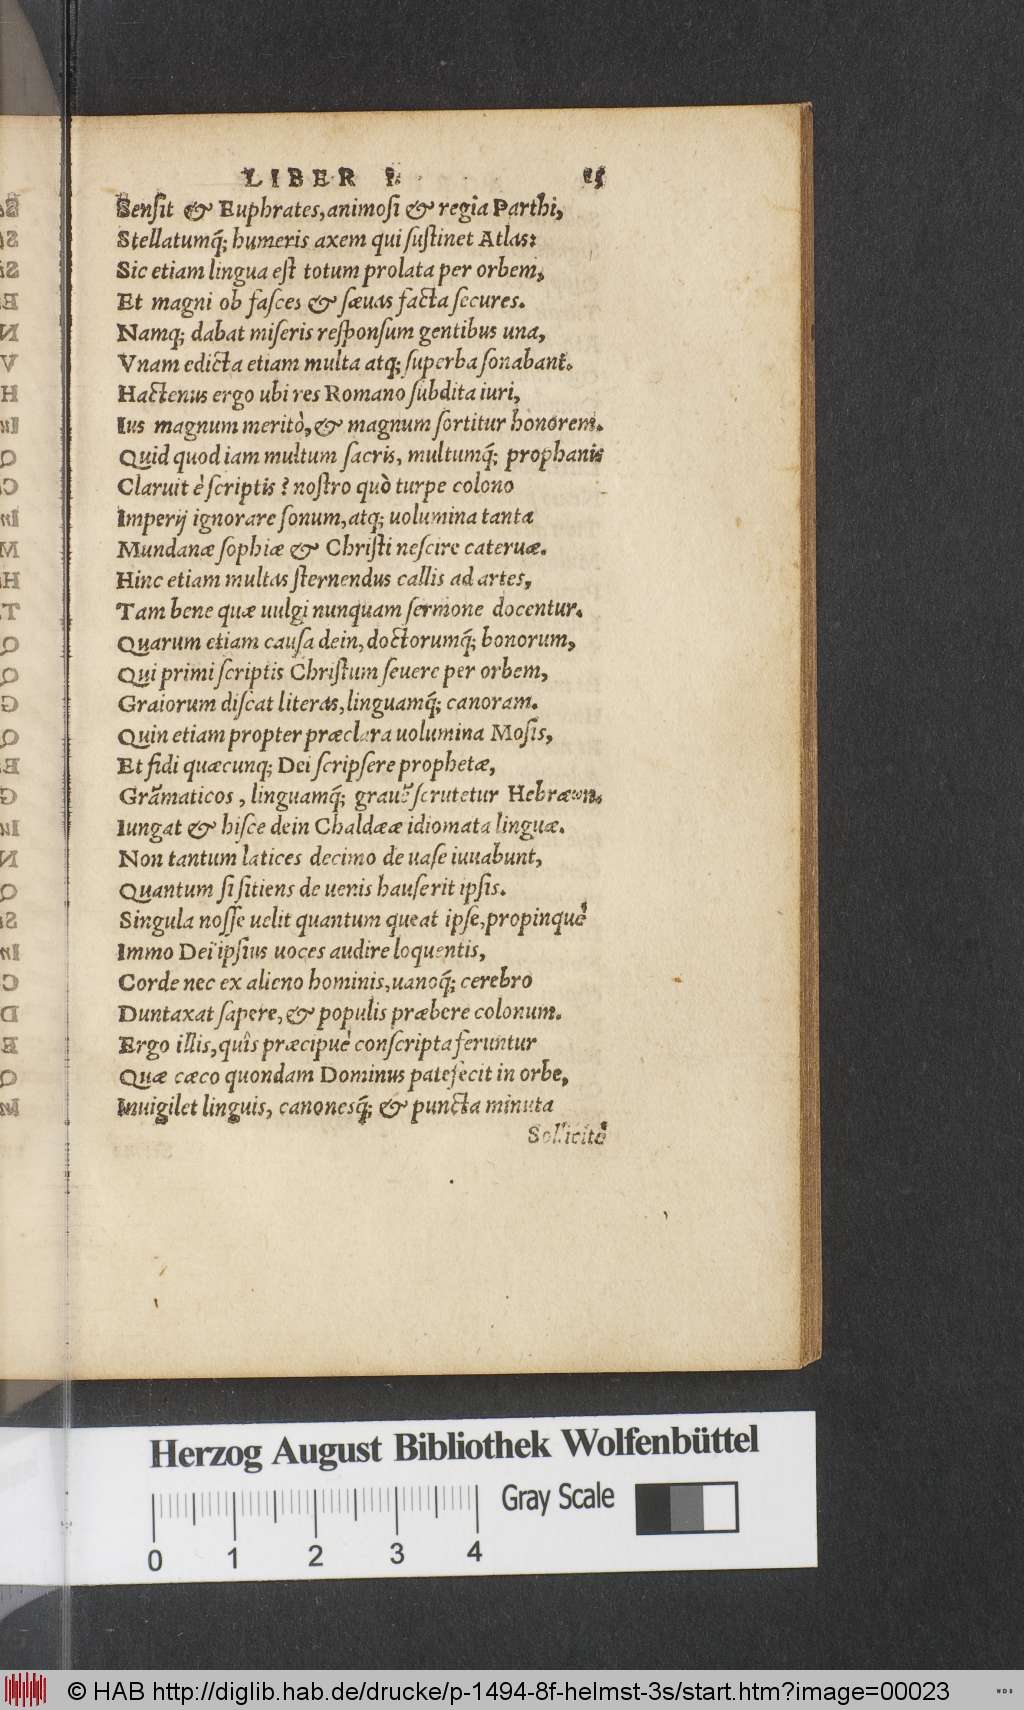 LIBER I. 15
Sensit & Euphrates, animosi & regia Parthi,
Stellatumq́; humeris axem qui sustinet Atlas:
Sic etiam lingua est totum prolata per orbem,
Et magni ob fasces & sævas facta secures.
Namq; dabat miseris responsum gentibus una,
Vnam edicta etiam multa atq; superba sonabant.
Hactenus ergo ubi res Romano subdita iuri,
Ius magnum meritò, & magnum sortitur honorem.
Quid quod iam multum sacris, multumq́; prophanis
Claruit è scriptis? nostro quò turpe colono
Imperij ignorare sonum, atq; uolumina tanta
Mundanæ sophiæ & Christi nescire cateruæ.
Hinc etiam multas sternendus callis ad artes,
Tam bene quæ uulgi nunquam sermone docentur.
Quarum etiam causa dein, doctorumq́; bonorum,
Qui primi scriptis Christum seuere per orbem,
Graiorum discat literas, linguamq́; canoram.
Quin etiam propter præclara uolumina Mosis,
Et fidi quæcunq; Dei scripsere prophetæ,
Grãmaticos, linguamq́; grauẽ scrutetur Hebræωn.
Iungat & hisce dein Chaldææ idiomata linguæ.
Non tantum latices decimo de uase iuuabunt,
Quantum si sitiens de uenis hauserit ipsis.
Singula nosse uelit quantum queat ipse, propinquè
Immo Dei ipsius uoces audire loquentis,
Corde nec ex alieno hominis, uanoq́; cerebro
Duntaxat sapere, & populis præbere colonum.
Ergo illis, quîs præcipuè conscripta feruntur
Quæ cæco quondam Dominus patefecit in orbe,
Inuigilet linguis, canonesq́; & puncta minuta
Sollicitè
Herzog August Bibliothek Wolfenbüttel
Gray Scale
0 1 2 3 4
© HAB http://diglib.hab.de/drucke/p-1494-8f-helmst-3s/start.htm?image=00023